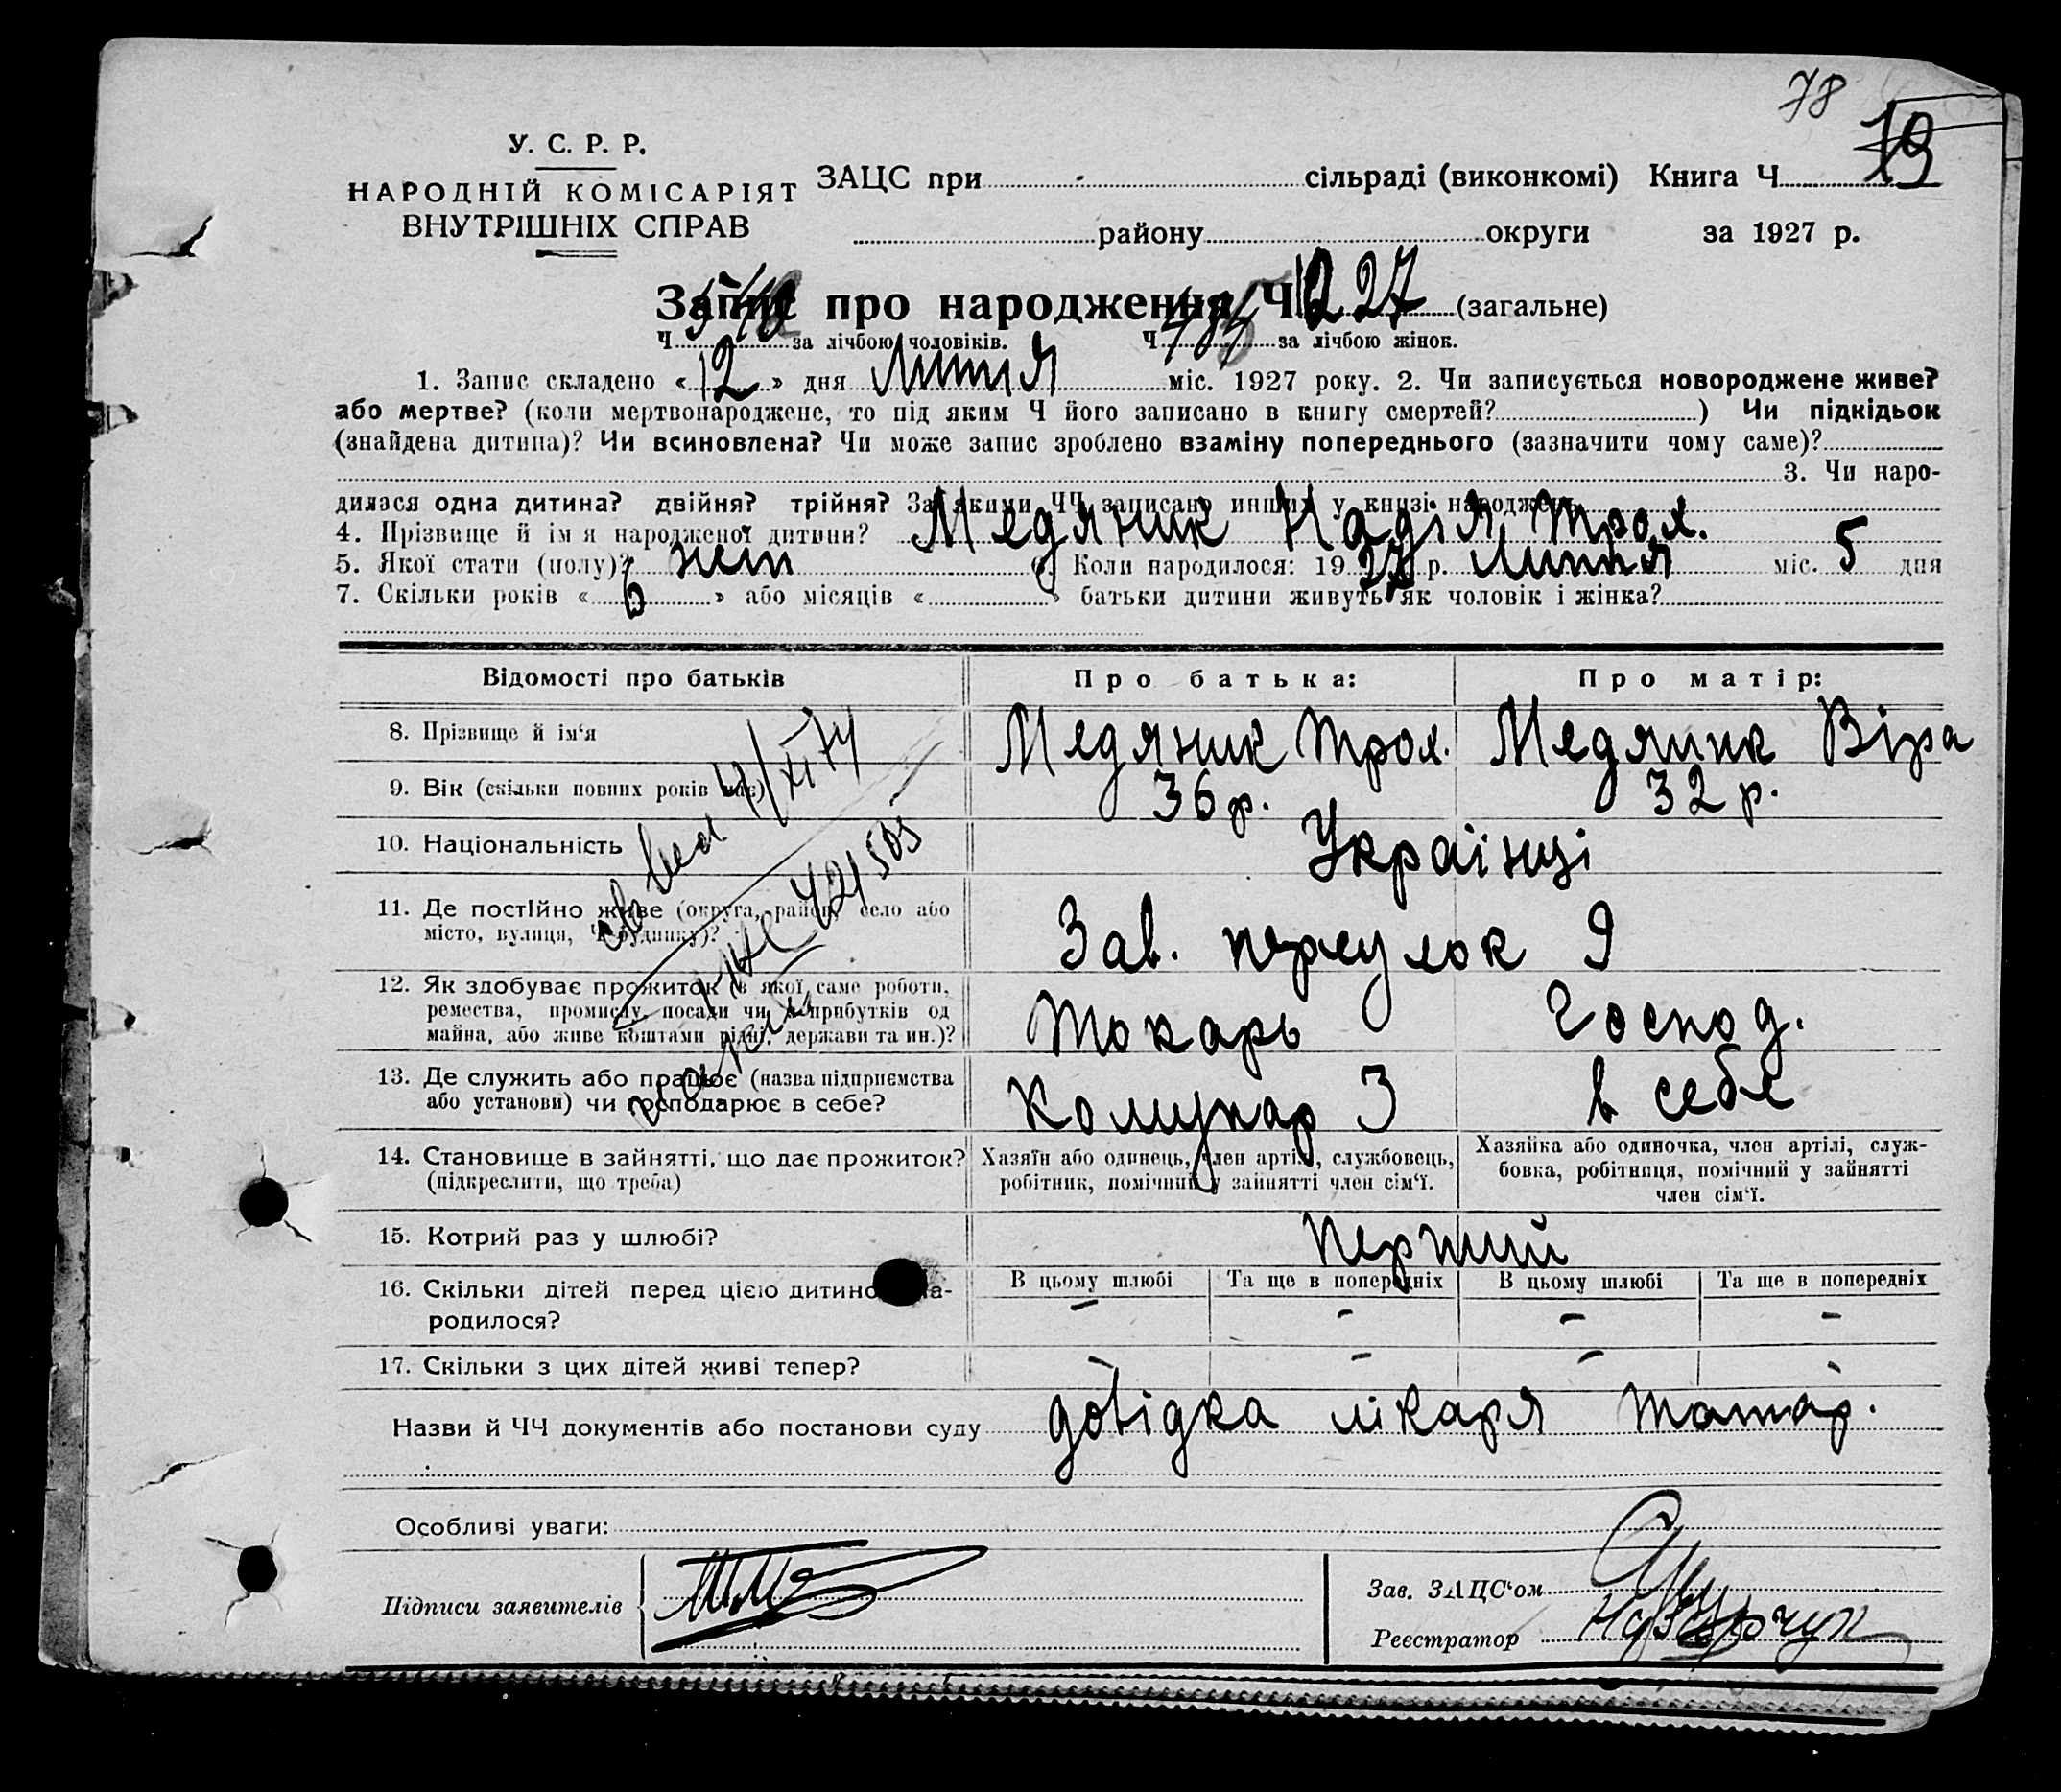 78
У. С. Р. Р.
НАРОДНІЙ КОМІСАРІЯТ
ВНУТРІШНІХ СПРАВ
ЗАЦС при сільраді (виконкомі) Книга Ч 19
району округи за 1927 р.
Запис про народження Ч 1227 (загальне)
Ч за лічбою чоловіків. Ч за лічбою жінок.
1. Запис складено « 12 » дня Липня міс. 1927 року. 2. Чи записується новороджене живе?
або мертве? (коли мертвонароджене, то під яким Ч його записано в книгу смертей? ) Чи підкідьок
(знайдена дитина)? Чи всиновлена? Чи може запис зроблено взаміну попереднього (зазначити чому саме)?
3. Чи наро-
дилася одна дитина? двійня? трійня? За якими ЧЧ записано инших у книзі народжень
4. Прізвище й ім'я народженої дитини? Медяник Надія Троя.
5. Якої стати (полу)? 6. Коли народилося: 1927 р. Липня міс. 5 дня
7. Скільки років « 6 » або місяців « » батьки дитини живуть як чоловік і жінка?
Відомості про батьків Про батька: Про матір:
8. Прізвище й ім'я Медяник Троя. Медяник Віра
9. Вік (скільки повних років має) 36 р. 32 р.
10. Національність Українці
11. Де постійно живе (округа, район, село або Зав. переулок 9
місто, вулиця, Ч будинку)?
12. Як здобуває прожиток (з якої саме роботи, Токарь Господ.
ремества, промислу, посади чи з прибутків од
майна, або живе коштами рідні, держави та ин.)?
13. Де служить або працює (назва підприємства Комунар З в себе
або установи) чи господарює в себе?
14. Становище в зайнятті, що дає прожиток? Хазяїн або одинець, член артілі, службовець, Хазяйка або одиночка, член артілі, служ-
(підкреслити, що треба) робітник, помічний у зайнятті член сім'ї. бовка, робітниця, помічний у зайнятті
член сім'ї.
15. Котрий раз у шлюбі? перший
16. Скільки дітей перед цією дитиною на- В цьому шлюбі Та ще в попередніх В цьому шлюбі Та ще в попередніх
родилося? – – – –
17. Скільки з цих дітей живі тепер? – – – –
Назви й ЧЧ документів або постанови суду довідка лікаря
Особливі уваги:
Підписи заявителів
Зав. ЗАЦС'ом
Реєстратор